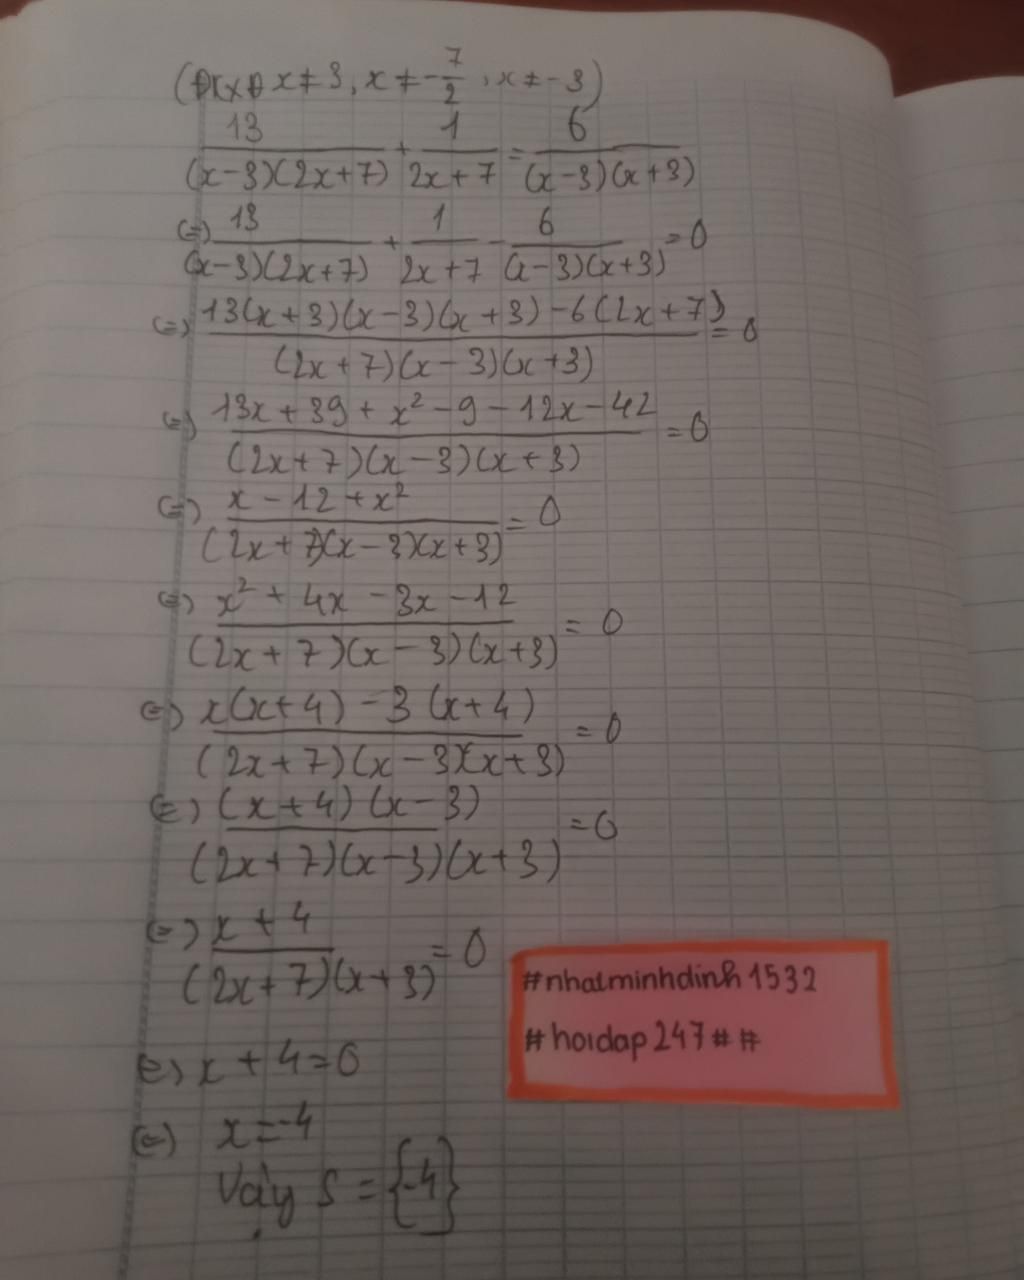 (ĐKXĐ x ≠ 3, x ≠ -7/2, x ≠ -3)
13/((x-3)(2x+7)) + 1/(2x+7) = 6/((x-3)(x+3))
(=) 13/((x-3)(2x+7)) + 1/(2x+7) - 6/((x-3)(x+3)) = 0
(=) (13(x+3)(x-3)(x+3) - 6(2x+7))/((2x+7)(x-3)(x+3)) = 0
(=) (13x + 39 + x² - 9 - 12x - 42)/((2x+7)(x-3)(x+3)) = 0
(=) (x - 12 + x²)/((2x+7)(x-3)(x+3)) = 0
(=) (x² + 4x - 3x - 12)/((2x+7)(x-3)(x+3)) = 0
(=) (x(x+4) - 3(x+4))/((2x+7)(x-3)(x+3)) = 0
(=) ((x+4)(x-3))/((2x+7)(x-3)(x+3)) = 0
(=) (x+4)/((2x+7)(x+3)) = 0
(=) x + 4 = 0
(=) x = -4
Vậy S = {-4}
#nhatminhdinh1532
#hoidap247##